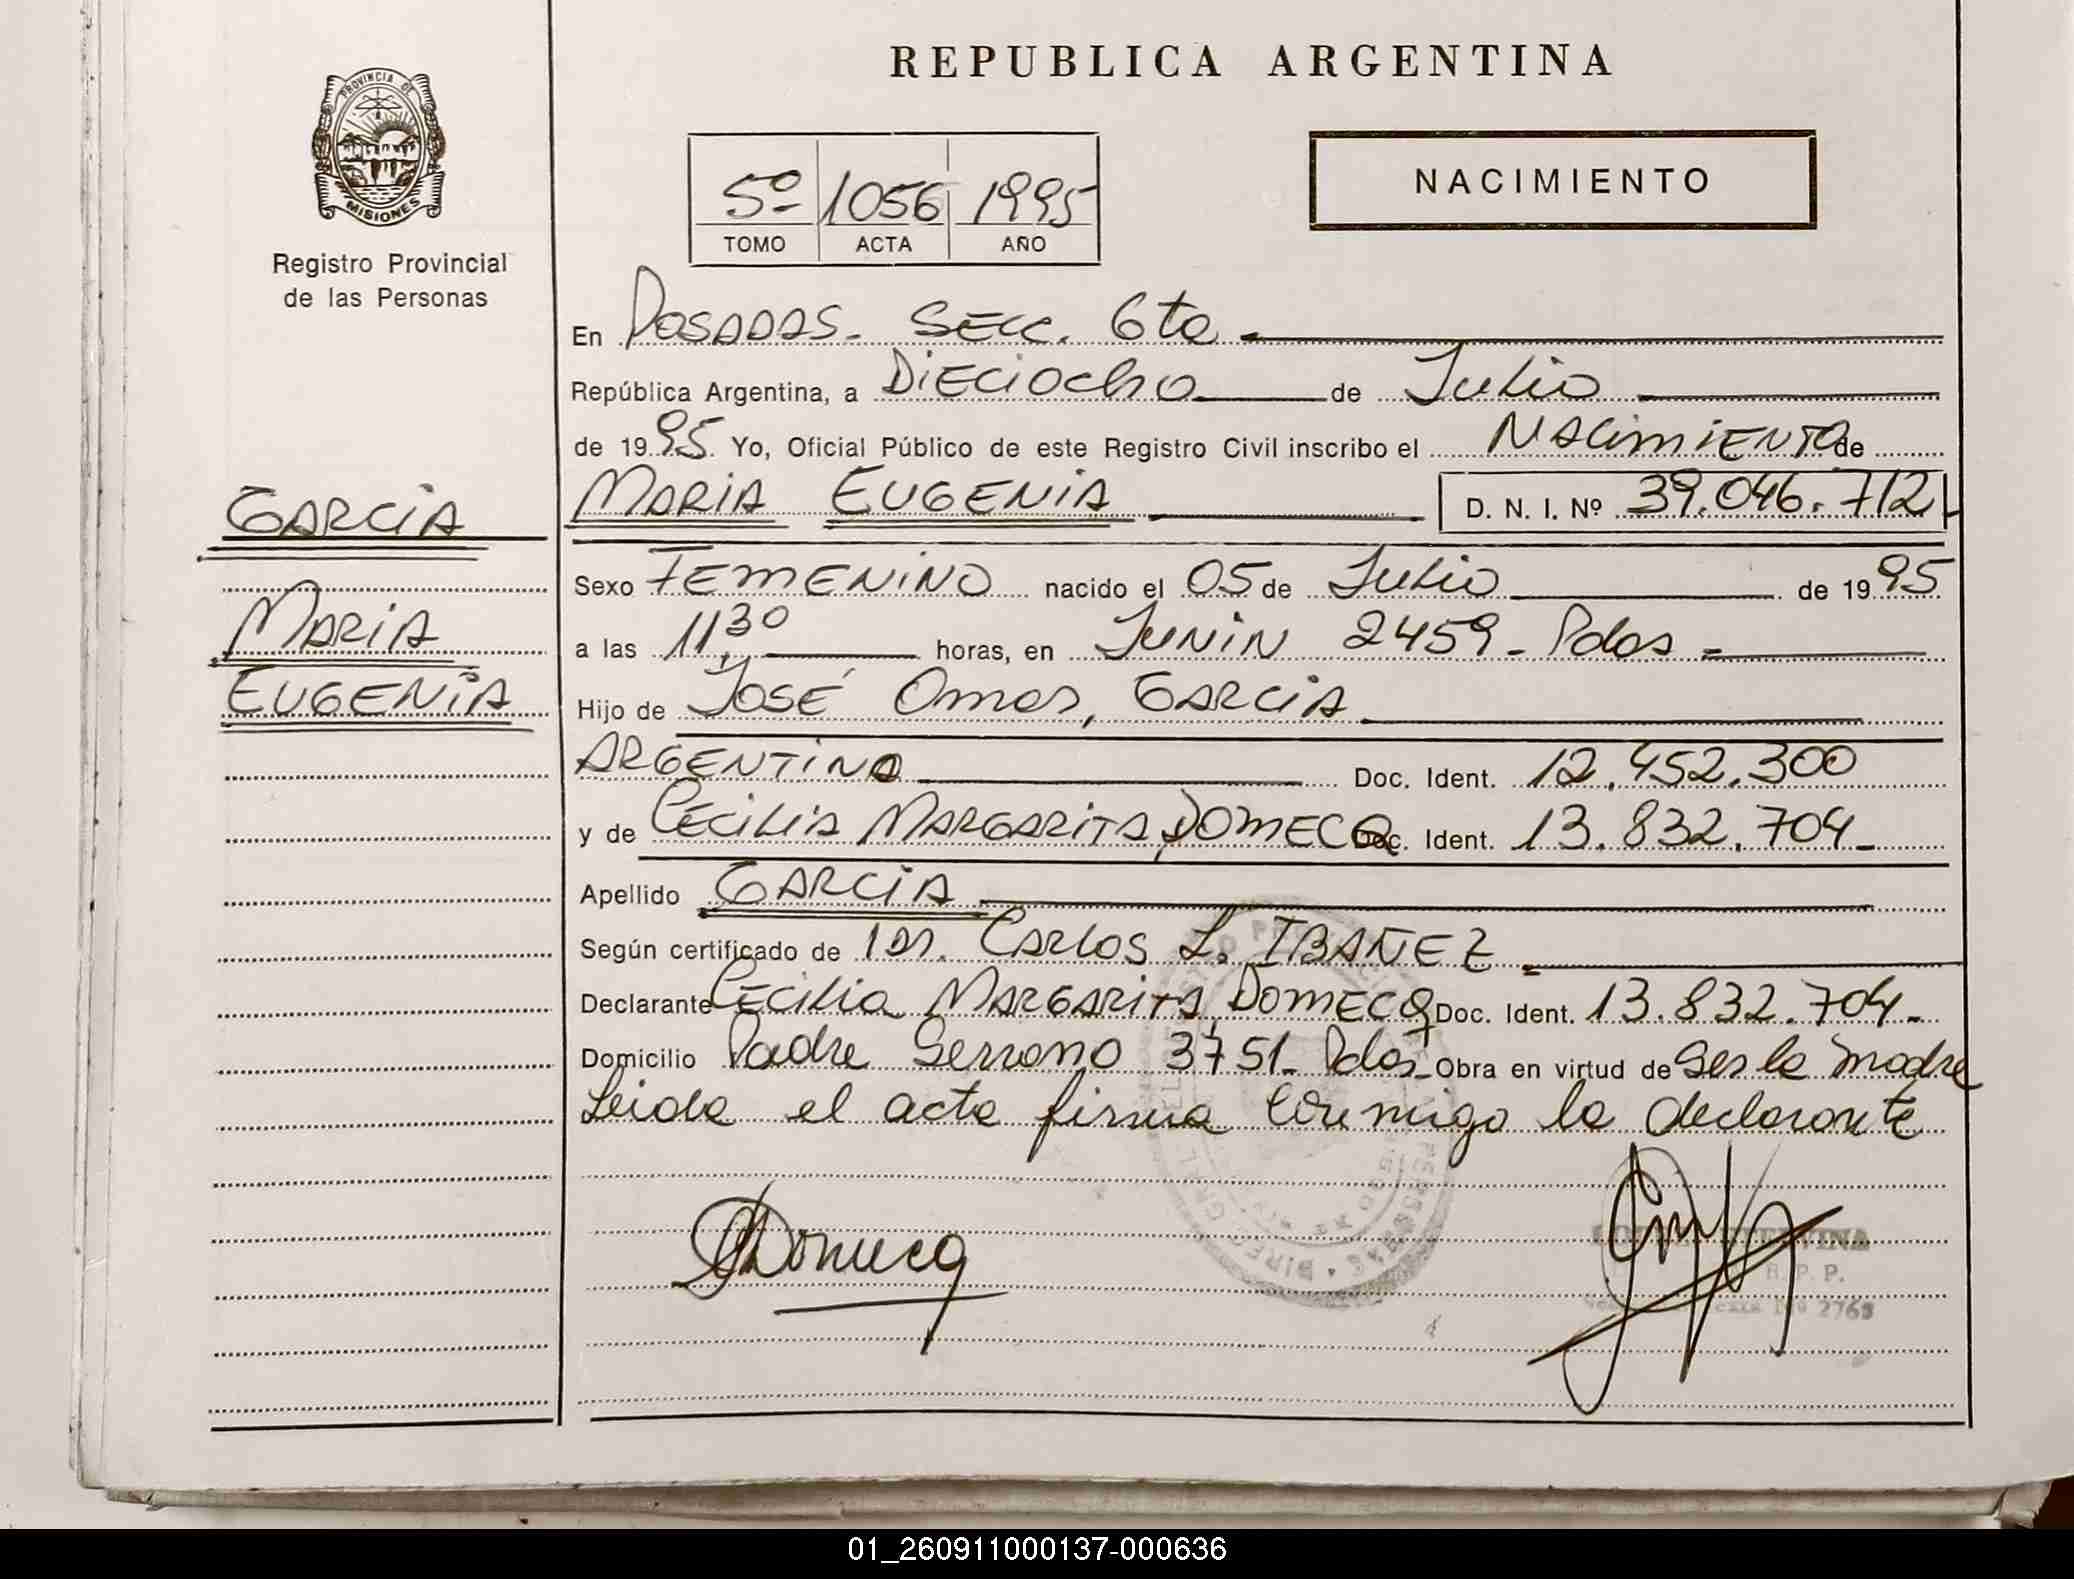 REPUBLICA ARGENTINA
PROVINCIA DE
MISIONES
Registro Provincial
de las Personas
NACIMIENTO
5º 1056 1995
TOMO ACTA AÑO
En POSADAS - SECC. 6ta -
República Argentina, a DIECIOCHO de JULIO
de 1995 Yo, Oficial Público de este Registro Civil inscribo el NACIMIENTO de
GARCIA
MARIA EUGENIA D. N. I. Nº 39.046.712
Sexo FEMENINO nacido el 05 de JULIO de 1995
MARIA
a las 11,30 horas, en JUNIN 2459 - Pdas -
EUGENIA
Hijo de JOSÉ Omar, GARCIA
ARGENTINO Doc. Ident. 12.452.300
y de CECILIA MARGARITA, DOMECQ Doc. Ident. 13.832.704 -
Apellido GARCIA
Según certificado de Dr. CARLOS L. IBAÑEZ -
Declarante CECILIA MARGARITA, DOMECQ Doc. Ident. 13.832.704 -
Domicilio Padre Serrano 3751 - Pdas - Obra en virtud de Ser la madre
Leida el acta firma conmigo la declarante
Domecq
R. P. P.
2763
01_260911000137-000636